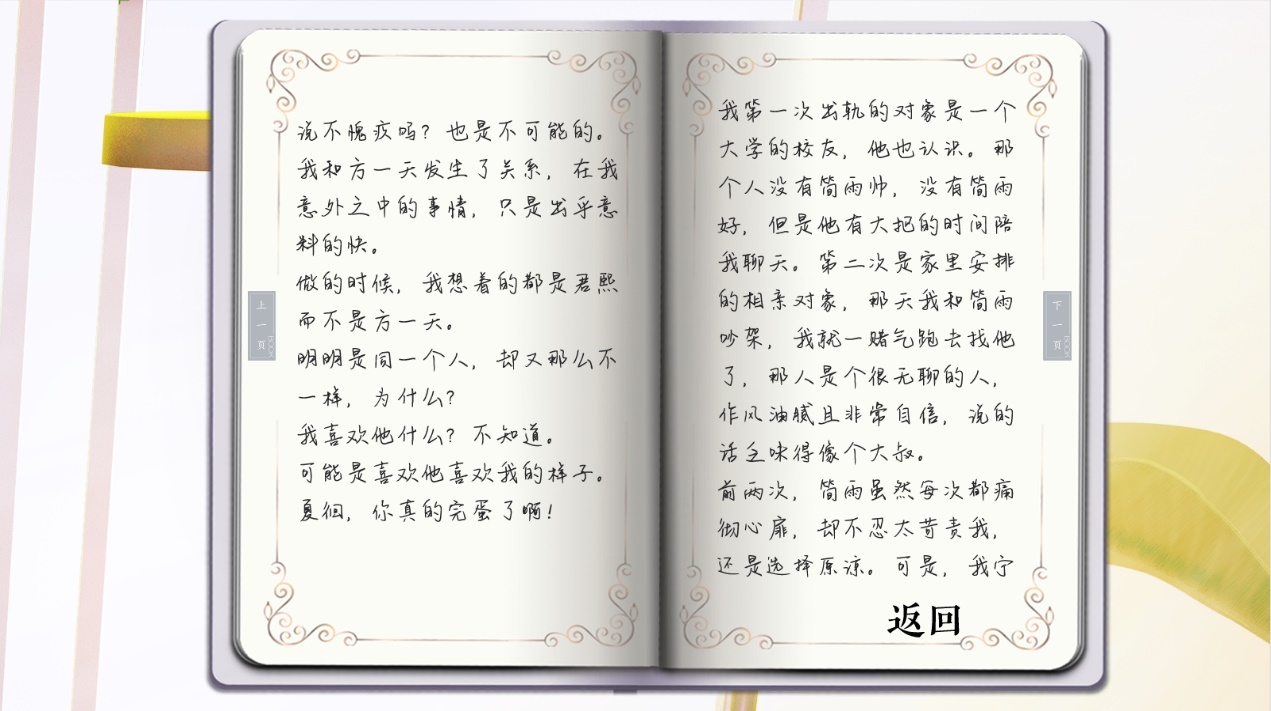 说不愧疚吗？也是不可能的。
我和方一天发生了关系，在我
意外之中的事情，只是出乎意
料的快。
做的时候，我想着的都是君熙
而不是方一天。
明明是同一个人，却又那么不
一样，为什么？
我喜欢他什么？不知道。
可能是喜欢他喜欢我的样子。
夏徊，你真的完蛋了啊！
上一页
我第一次出轨的对象是一个
大学的校友，他也认识。那
个人没有简雨帅，没有简雨
好，但是他有大把的时间陪
我聊天。第二次是家里安排
的相亲对象，那天我和简雨
吵架，我就一赌气跑去找他
了，那人是个很无聊的人，
作风油腻且非常自信，说的
话乏味得像个大叔。
前两次，简雨虽然每次都痛
彻心扉，却不忍太苛责我，
还是选择原谅。可是，我宁
下一页
返回